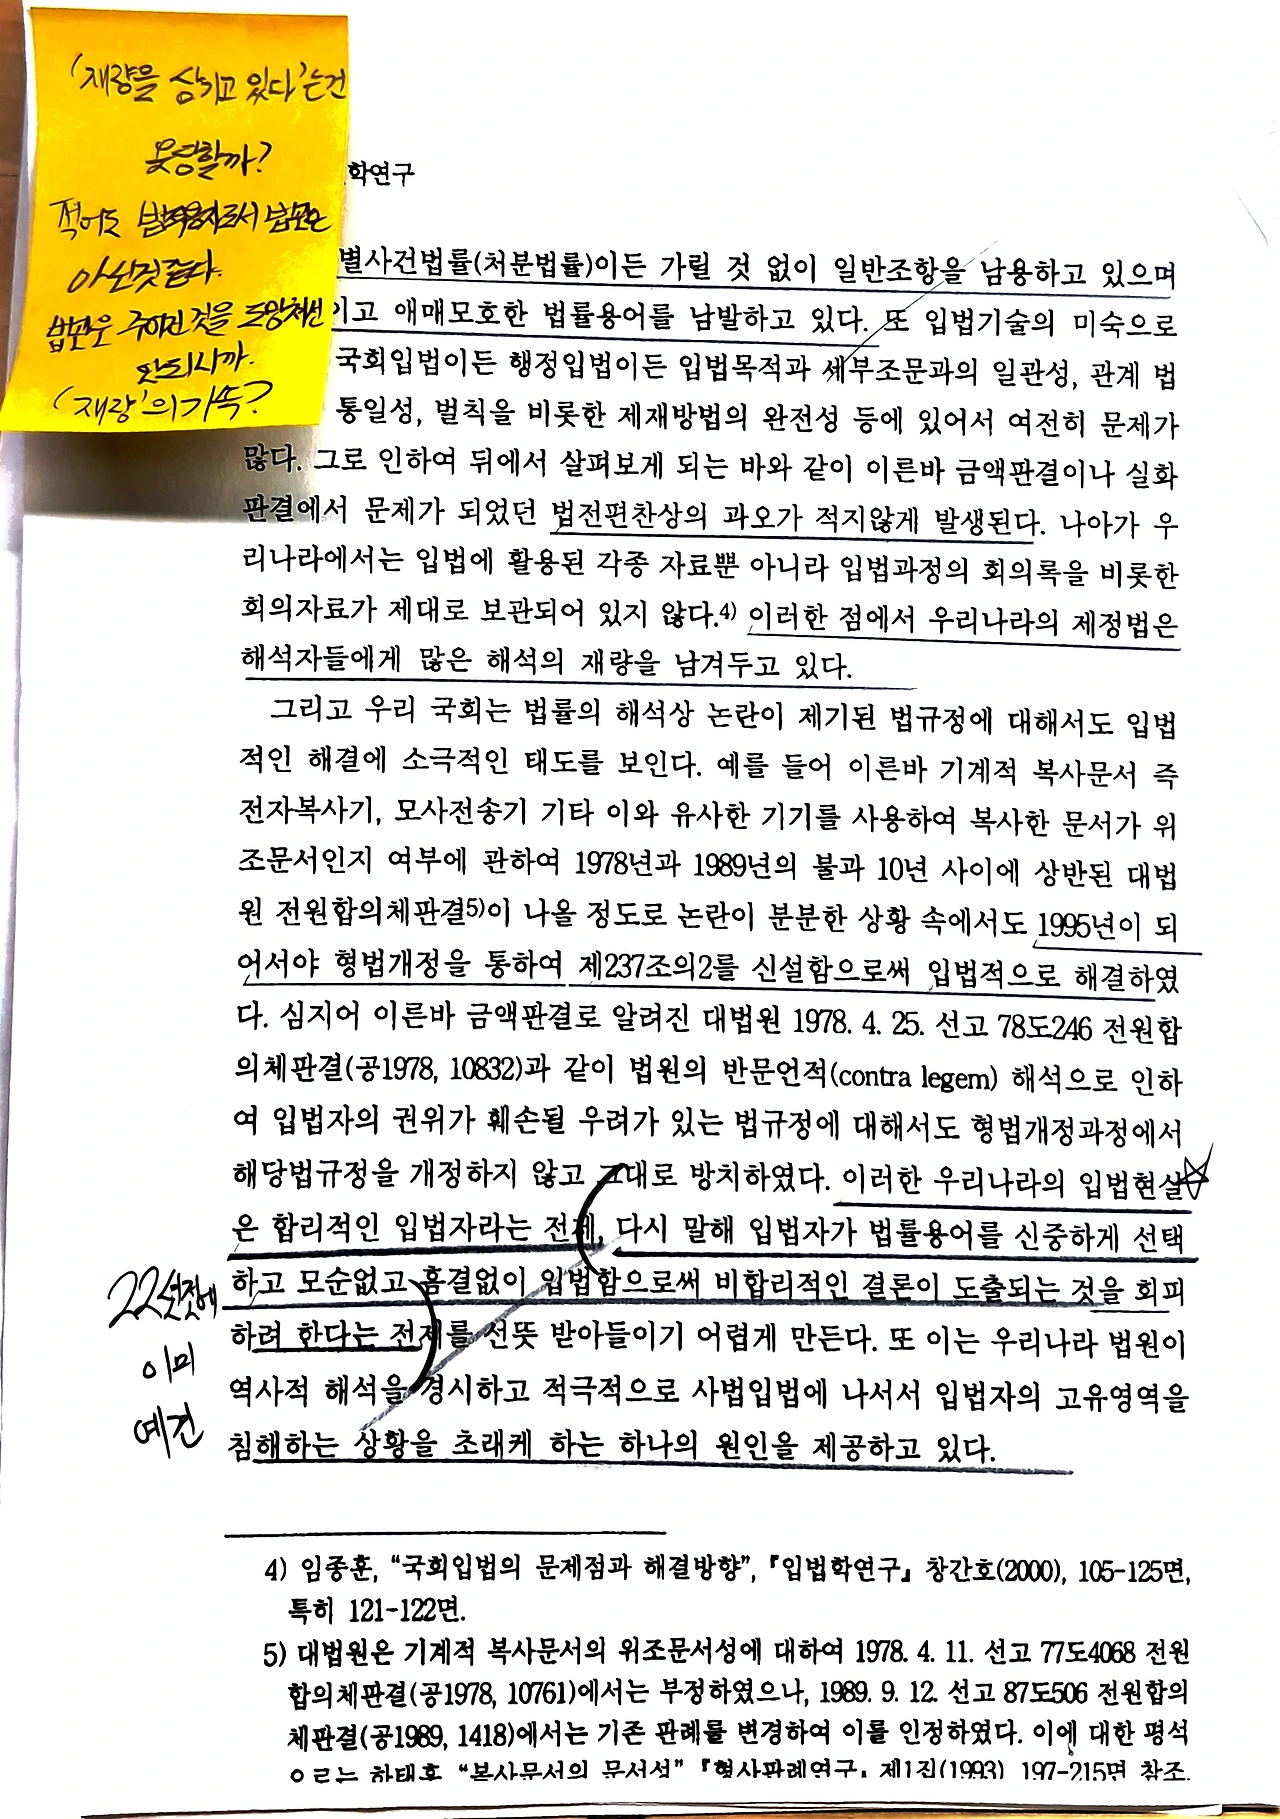 '재량을 남기고 있다'는건
못할까?
적어도 법적용자로서 법관은
아닌것같다.
법관은 주어진 것을
'재량'의 가족?
학연구
별사건법률(처분법률)이든 가릴 것 없이 일반조항을 남용하고 있으며
이고 애매모호한 법률용어를 남발하고 있다. 또 입법기술의 미숙으로
국회입법이든 행정입법이든 입법목적과 세부조문과의 일관성, 관계 법
통일성, 벌칙을 비롯한 제재방법의 완전성 등에 있어서 여전히 문제가
많다. 그로 인하여 뒤에서 살펴보게 되는 바와 같이 이른바 금액판결이나 실화
판결에서 문제가 되었던 법전편찬상의 과오가 적지않게 발생된다. 나아가 우
리나라에서는 입법에 활용된 각종 자료뿐 아니라 입법과정의 회의록을 비롯한
회의자료가 제대로 보관되어 있지 않다.4) 이러한 점에서 우리나라의 제정법은
해석자들에게 많은 해석의 재량을 남겨두고 있다.
그리고 우리 국회는 법률의 해석상 논란이 제기된 법규정에 대해서도 입법
적인 해결에 소극적인 태도를 보인다. 예를 들어 이른바 기계적 복사문서 즉
전자복사기, 모사전송기 기타 이와 유사한 기기를 사용하여 복사한 문서가 위
조문서인지 여부에 관하여 1978년과 1989년의 불과 10년 사이에 상반된 대법
원 전원합의체판결5)이 나올 정도로 논란이 분분한 상황 속에서도 1995년이 되
어서야 형법개정을 통하여 제237조의2를 신설함으로써 입법적으로 해결하였
다. 심지어 이른바 금액판결로 알려진 대법원 1978. 4. 25. 선고 78도246 전원합
의체판결(공1978, 10832)과 같이 법원의 반문언적(contra legem) 해석으로 인하
여 입법자의 권위가 훼손될 우려가 있는 법규정에 대해서도 형법개정과정에서
해당법규정을 개정하지 않고 그대로 방치하였다. 이러한 우리나라의 입법현실
은 합리적인 입법자라는 전제, 다시 말해 입법자가 법률용어를 신중하게 선택
하고 모순없고 흠결없이 입법함으로써 비합리적인 결론이 도출되는 것을 회피
하려 한다는 전제를 선뜻 받아들이기 어렵게 만든다. 또 이는 우리나라 법원이
역사적 해석을 경시하고 적극적으로 사법입법에 나서서 입법자의 고유영역을
침해하는 상황을 초래케 하는 하나의 원인을 제공하고 있다.
22년전에
이미
예견
4) 임종훈, "국회입법의 문제점과 해결방향", 『입법학연구』 창간호(2000), 105-125면,
특히 121-122면.
5) 대법원은 기계적 복사문서의 위조문서성에 대하여 1978. 4. 11. 선고 77도4068 전원
합의체판결(공1978, 10761)에서는 부정하였으나, 1989. 9. 12. 선고 87도506 전원합의
체판결(공1989, 1418)에서는 기존 판례를 변경하여 이를 인정하였다. 이에 대한 평석
으로는 하태훈, "복사문서의 문서성" 『형사판례연구』 제1집(1993) 197-215면 참조.